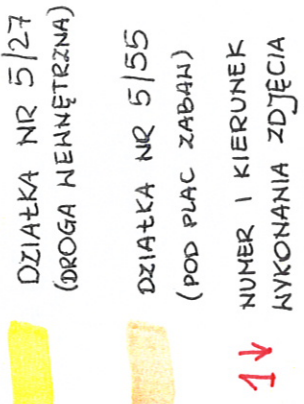 DZIAŁKA NR 5/27
(DROGA WEWNĘTRZNA)
DZIAŁKA NR 5/55
(POD PLAC ZABAW)
1 NUMER I KIERUNEK
WYKONANIA ZDJĘCIA